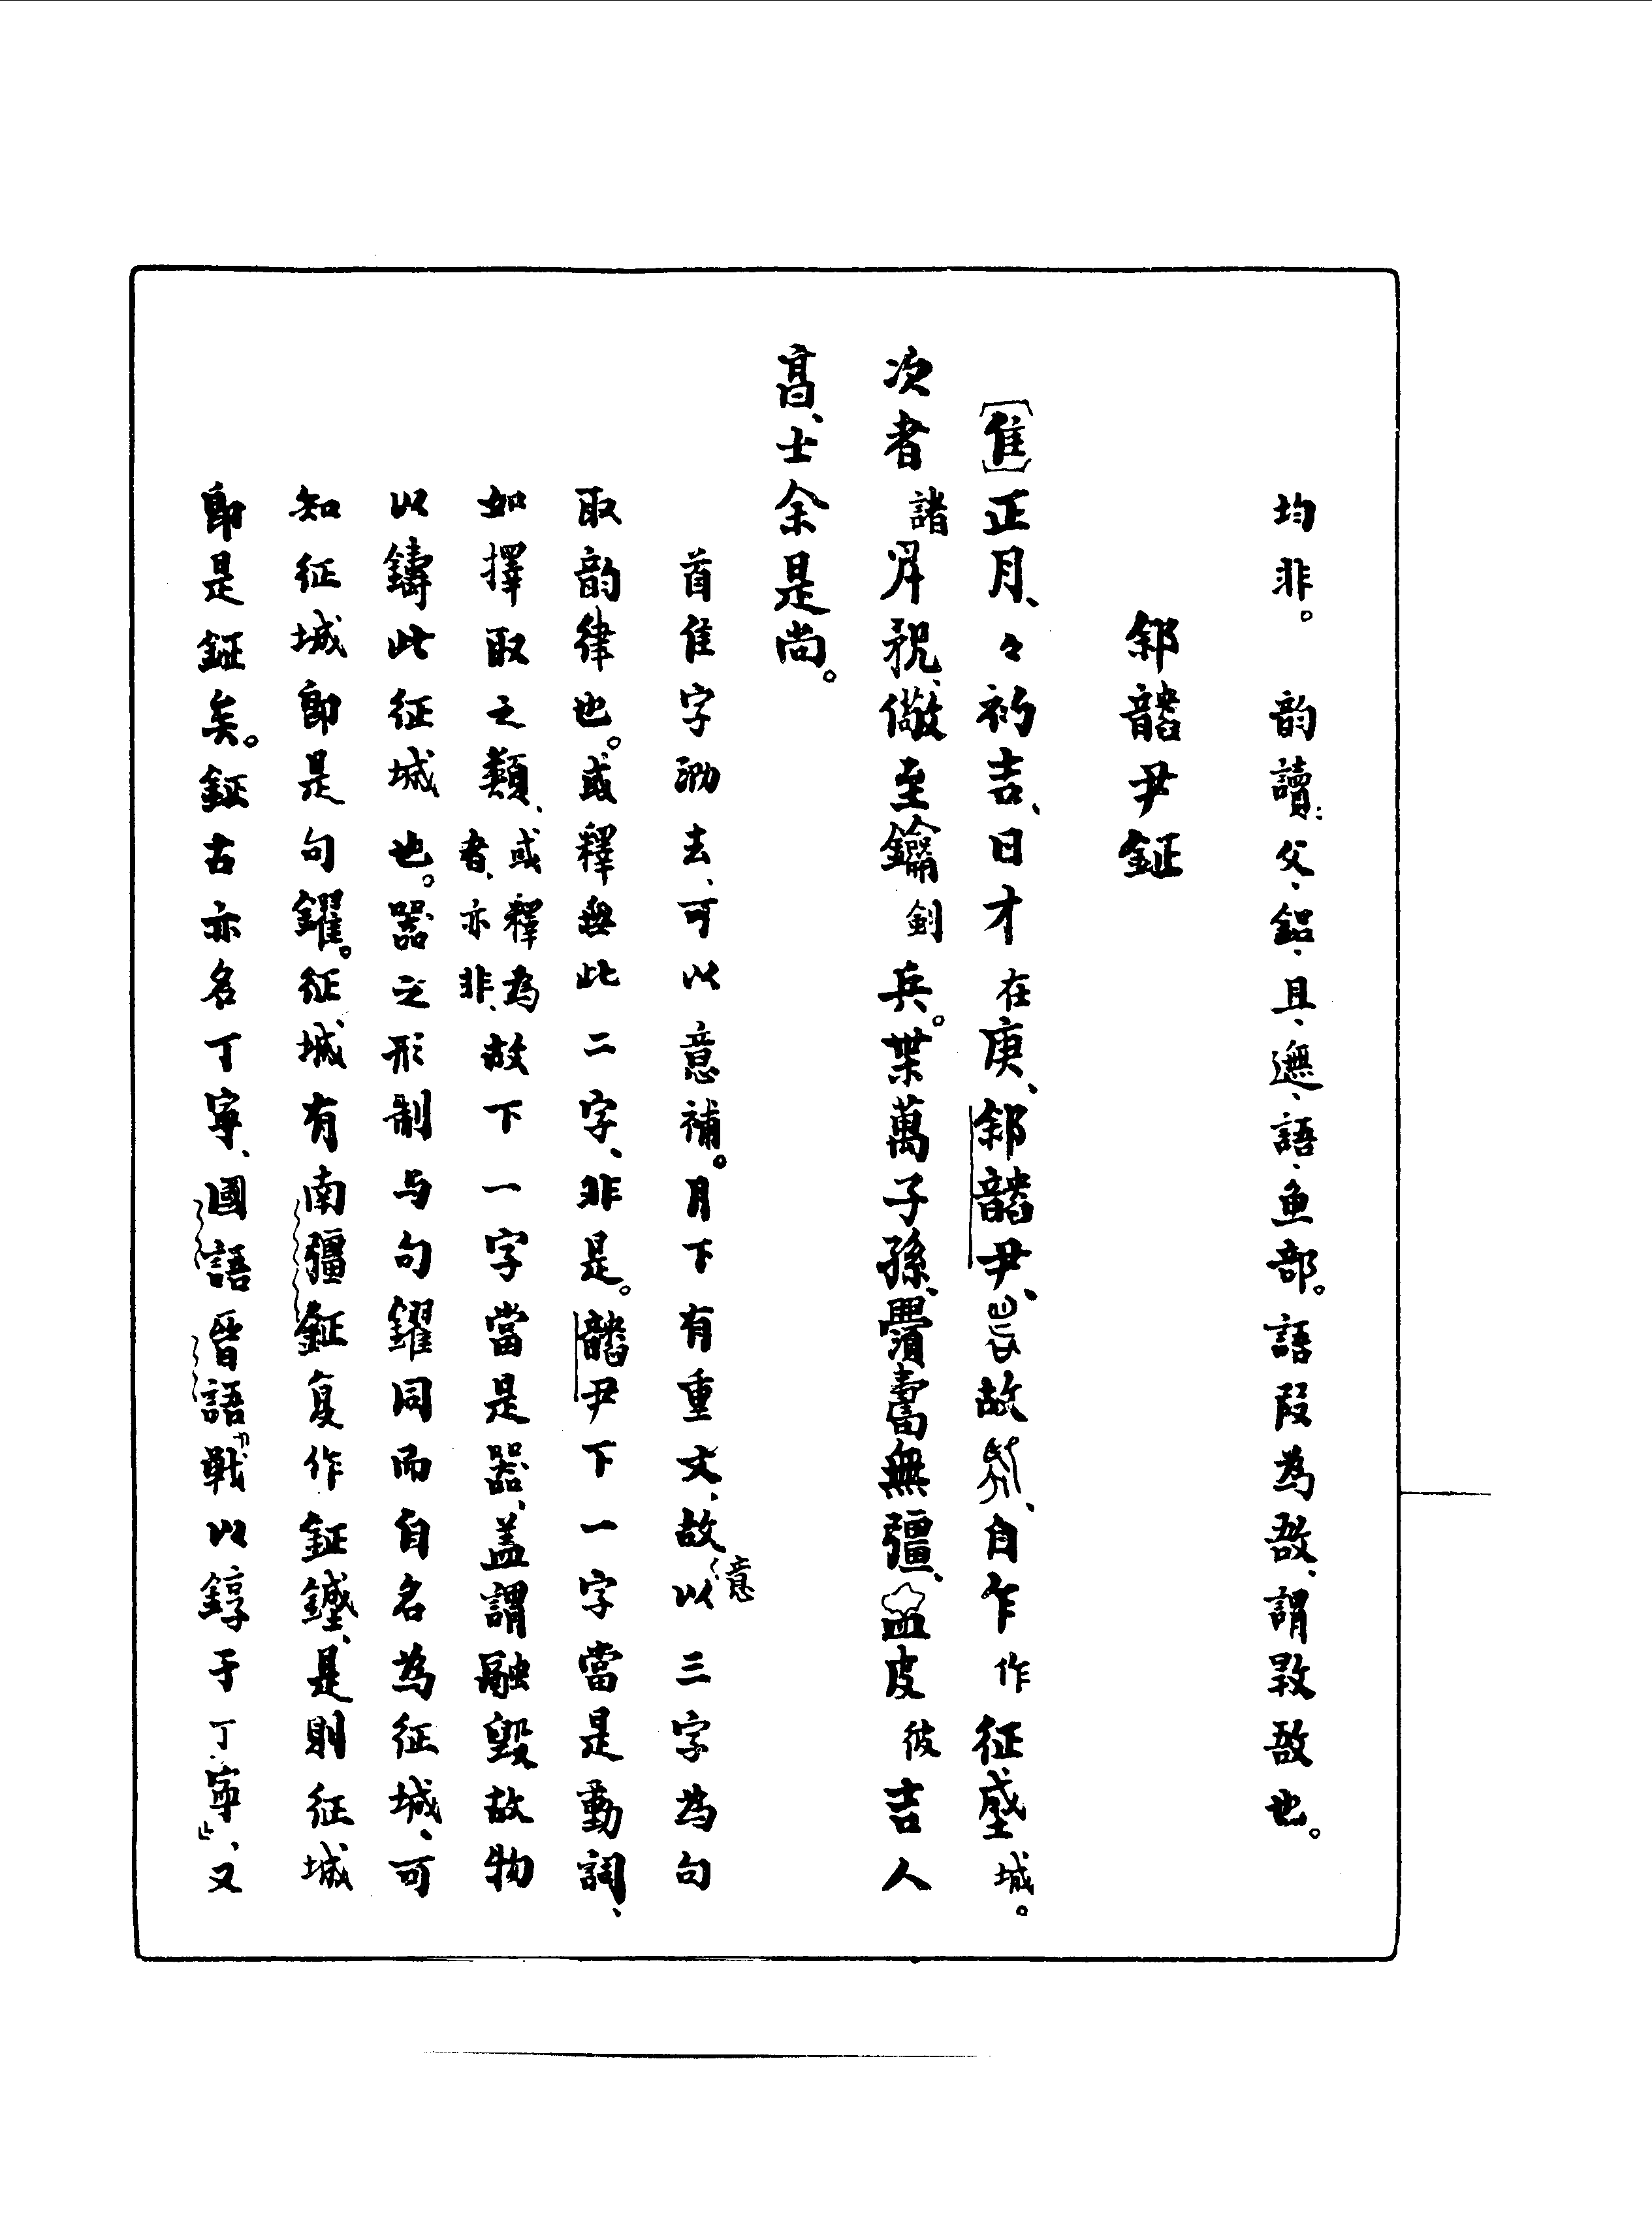 均非。　韵讀：父、鋁、且、𨗴、語、魚部。語叚為敔、謂斁敔也。
䣄䛑尹鉦
〔隹〕正月、々初吉、日才在庚、䣄尹、故、自乍作征城。
次者諸升祝、儆至鑰劍兵。枼萬子孫、眉壽無疆、皿皮彼吉人
享、士余是尚。
首隹字泐去、可以意補。月下有重文、故以意三字為句
取韵律也。或釋無此二字、非是。尹下一字當是動詞、
如擇取之類、或釋為者、亦非、故下一字當是器、盖謂融毀故物
以鑄此征城也。器之形制与句鑃同而自名為征城、可
知征城即是句鑃。征城有南疆鉦复作鉦鋮、是則征城
即是鉦矣。鉦古亦名丁寧、國語晉語『戰以錞于丁寧』、又